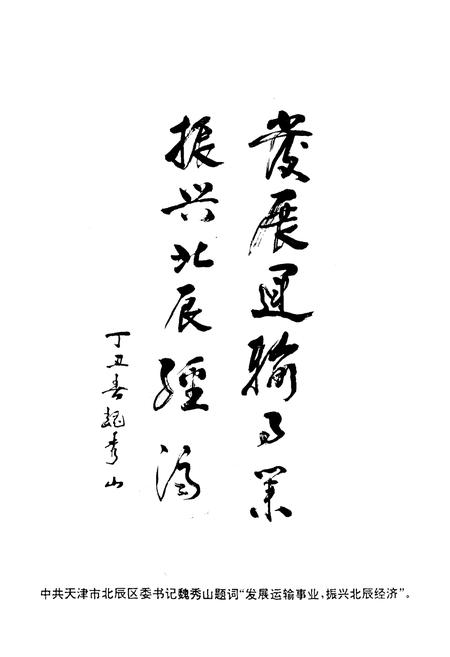 發展运输事業
振兴北辰經济
丁丑春魏秀山
中共天津市北辰区委书记魏秀山题词“发展运输事业，振兴北辰经济”。